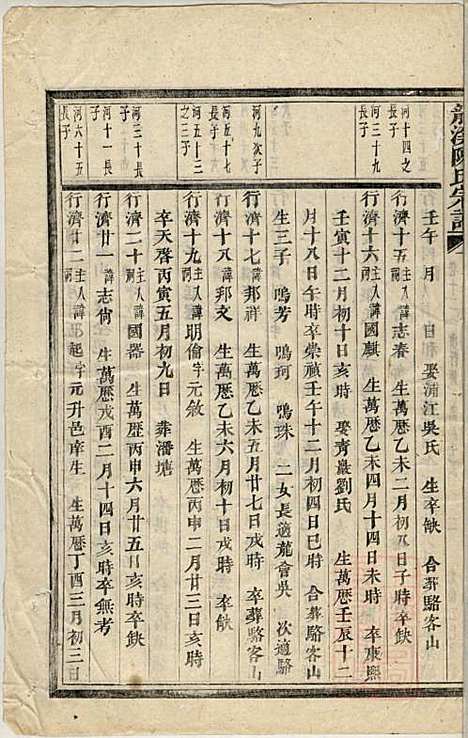 龍溪陳氏宗譜
壬午 月 日 娶浦江吳氏 生卒缺 合葬駱客山
河十四之長子
行濟十五 主人諱志春 生萬曆乙未二月初八日子時 卒缺
河三十九長子
行濟十六 諱國麒 生萬曆乙未四月十四日未時 卒康熙
壬寅十二月初十日亥時 娶青巖劉氏 生萬曆壬辰十二
月十八日午時卒崇禎壬午十二月初四日巳時 合葬駱客山
生三子 鳴芳 鳴珂 鳴珠 二女長適龍會吳 次適駱
河九次子
行濟十七 諱邦祥 生萬曆乙未五月廿七日戌時 卒葬駱客山
河五十七長子
行濟十八 諱邦文 生萬曆乙未六月初十日戌時 卒缺
河五十三之三子
行濟十九 主人諱明倫字元敘 生萬曆丙申二月廿三日亥時
卒天啓丙寅五月初九日 葬潘塘
河三十長子
行濟二十 主人諱國器 生萬歷丙申六月廿五日亥時卒缺
河十一長子
行濟廿一 諱志尙 生萬曆戊酉二月十四日亥時卒無考
河六十五長子
行濟廿二 主人諱 起字元升邑庠生 生萬曆丁酉三月初三日